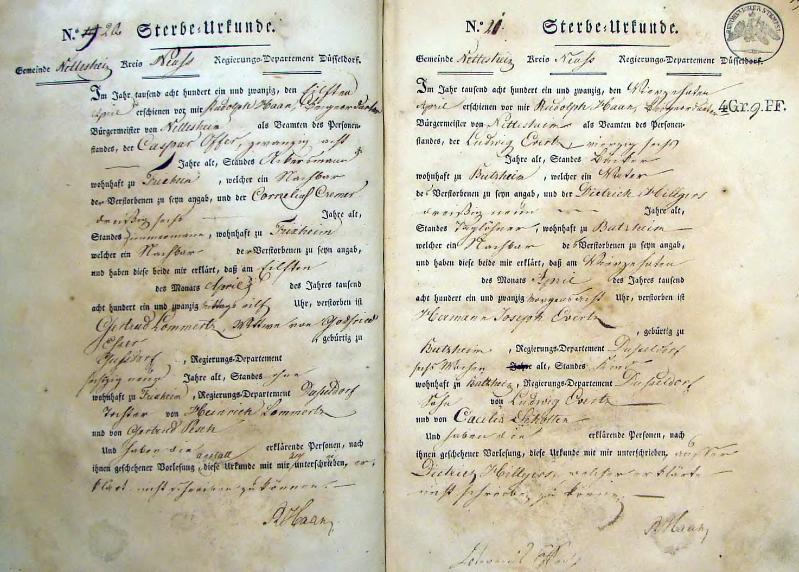 N.º 20 Sterbe-Urkunde.
Gemeinde Nettesheim Kreis Neuss Regierungs-Departement Düsseldorf.
Im Jahr tausend acht hundert ein und zwanzig, den Eilften
April erschienen vor mir Rudolph Haan,
Bürgermeister von Nettesheim als Beamten des Personen-
standes, der Caspar Esser zwanzig acht
Jahre alt, Standes Ackersmann
wohnhaft zu, welcher ein Nachbar
des Verstorbenen zu seyn angab, und der Cornelius Cremer
dreißig sechs Jahre alt,
Standes, wohnhaft zu Fuxheim
welcher ein Nachbar der Verstorbenen zu seyn angab,
und haben diese beide mir erklärt, daß am Eilften
des Monats April des Jahres tausend
acht hundert ein und zwanzig mittags eilf Uhr, verstorben ist
Gertrud Lommertz Wittwe von Godfried
Esser gebürtig zu
, Regierungs-Departement
sechszig neun Jahre alt, Standes ohne
wohnhaft zu Fuxheim, Regierungs-Departement Düsseldorf
Tochter von Heinrich Lommertz
und von Gertrud
Und haben die erklärende Personen, nach
ihnen geschehener Vorlesung, diese Urkunde mit mir unterschrieben, er-
klärt nicht schreiben zu können.
R Haan
N.º 21. Sterbe-Urkunde.
Gemeinde Nettesheim Kreis Neuss Regierungs-Departement Düsseldorf.
4 Gr. 9 PF.
Im Jahr tausend acht hundert ein und zwanzig, den Vierzehnten
April erschienen vor mir Rudolph Haan,
Bürgermeister von Nettesheim als Beamten des Personen-
standes, der Ludwig Evertz vierzig sechs
Jahre alt, Standes
wohnhaft zu Butzheim, welcher ein Vater
des Verstorbenen zu seyn angab, und der Dietrich Hillgers
dreißig neun Jahre alt,
Standes Taglöhner, wohnhaft zu Butzheim
welcher ein Nachbar des Verstorbenen zu seyn angab,
und haben diese beide mir erklärt, daß am Vierzehnten
des Monats April des Jahres tausend
acht hundert ein und zwanzig morgens acht Uhr, verstorben ist
Hermann Joseph Evertz
gebürtig zu
Butzheim, Regierungs-Departement Düsseldorf
sechs Wochen alt, Standes
wohnhaft zu Butzheim, Regierungs-Departement Düsseldorf
Sohn von Ludwig Evertz
und von Cacilia
Und haben die erklärende Personen, nach
ihnen geschehener Vorlesung, diese Urkunde mit mir unterschrieben, außer
Dietrich Hillgers welcher erklärte
nicht schreiben zu können
R Haan